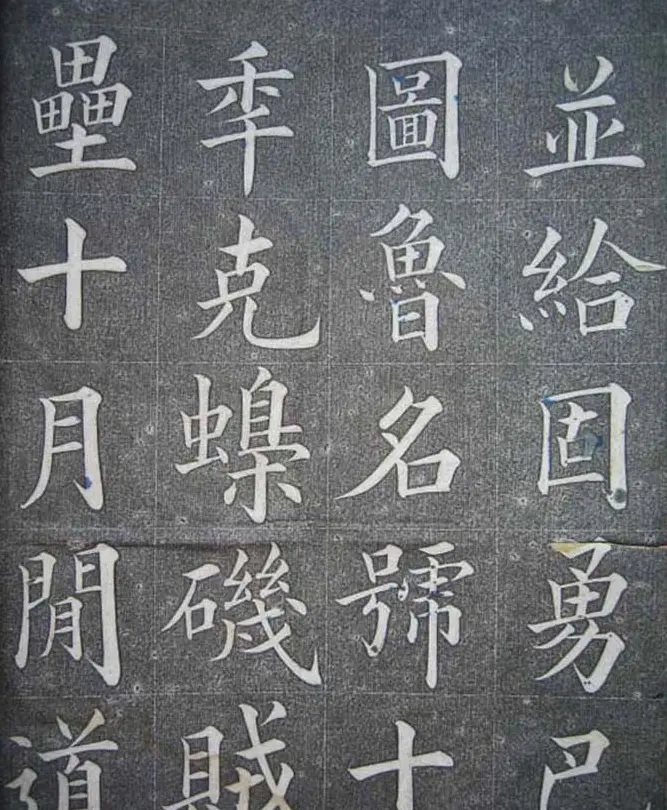 並給固勇巴
圖魯名號十
秊克蟂磯賊
壘十月閒道